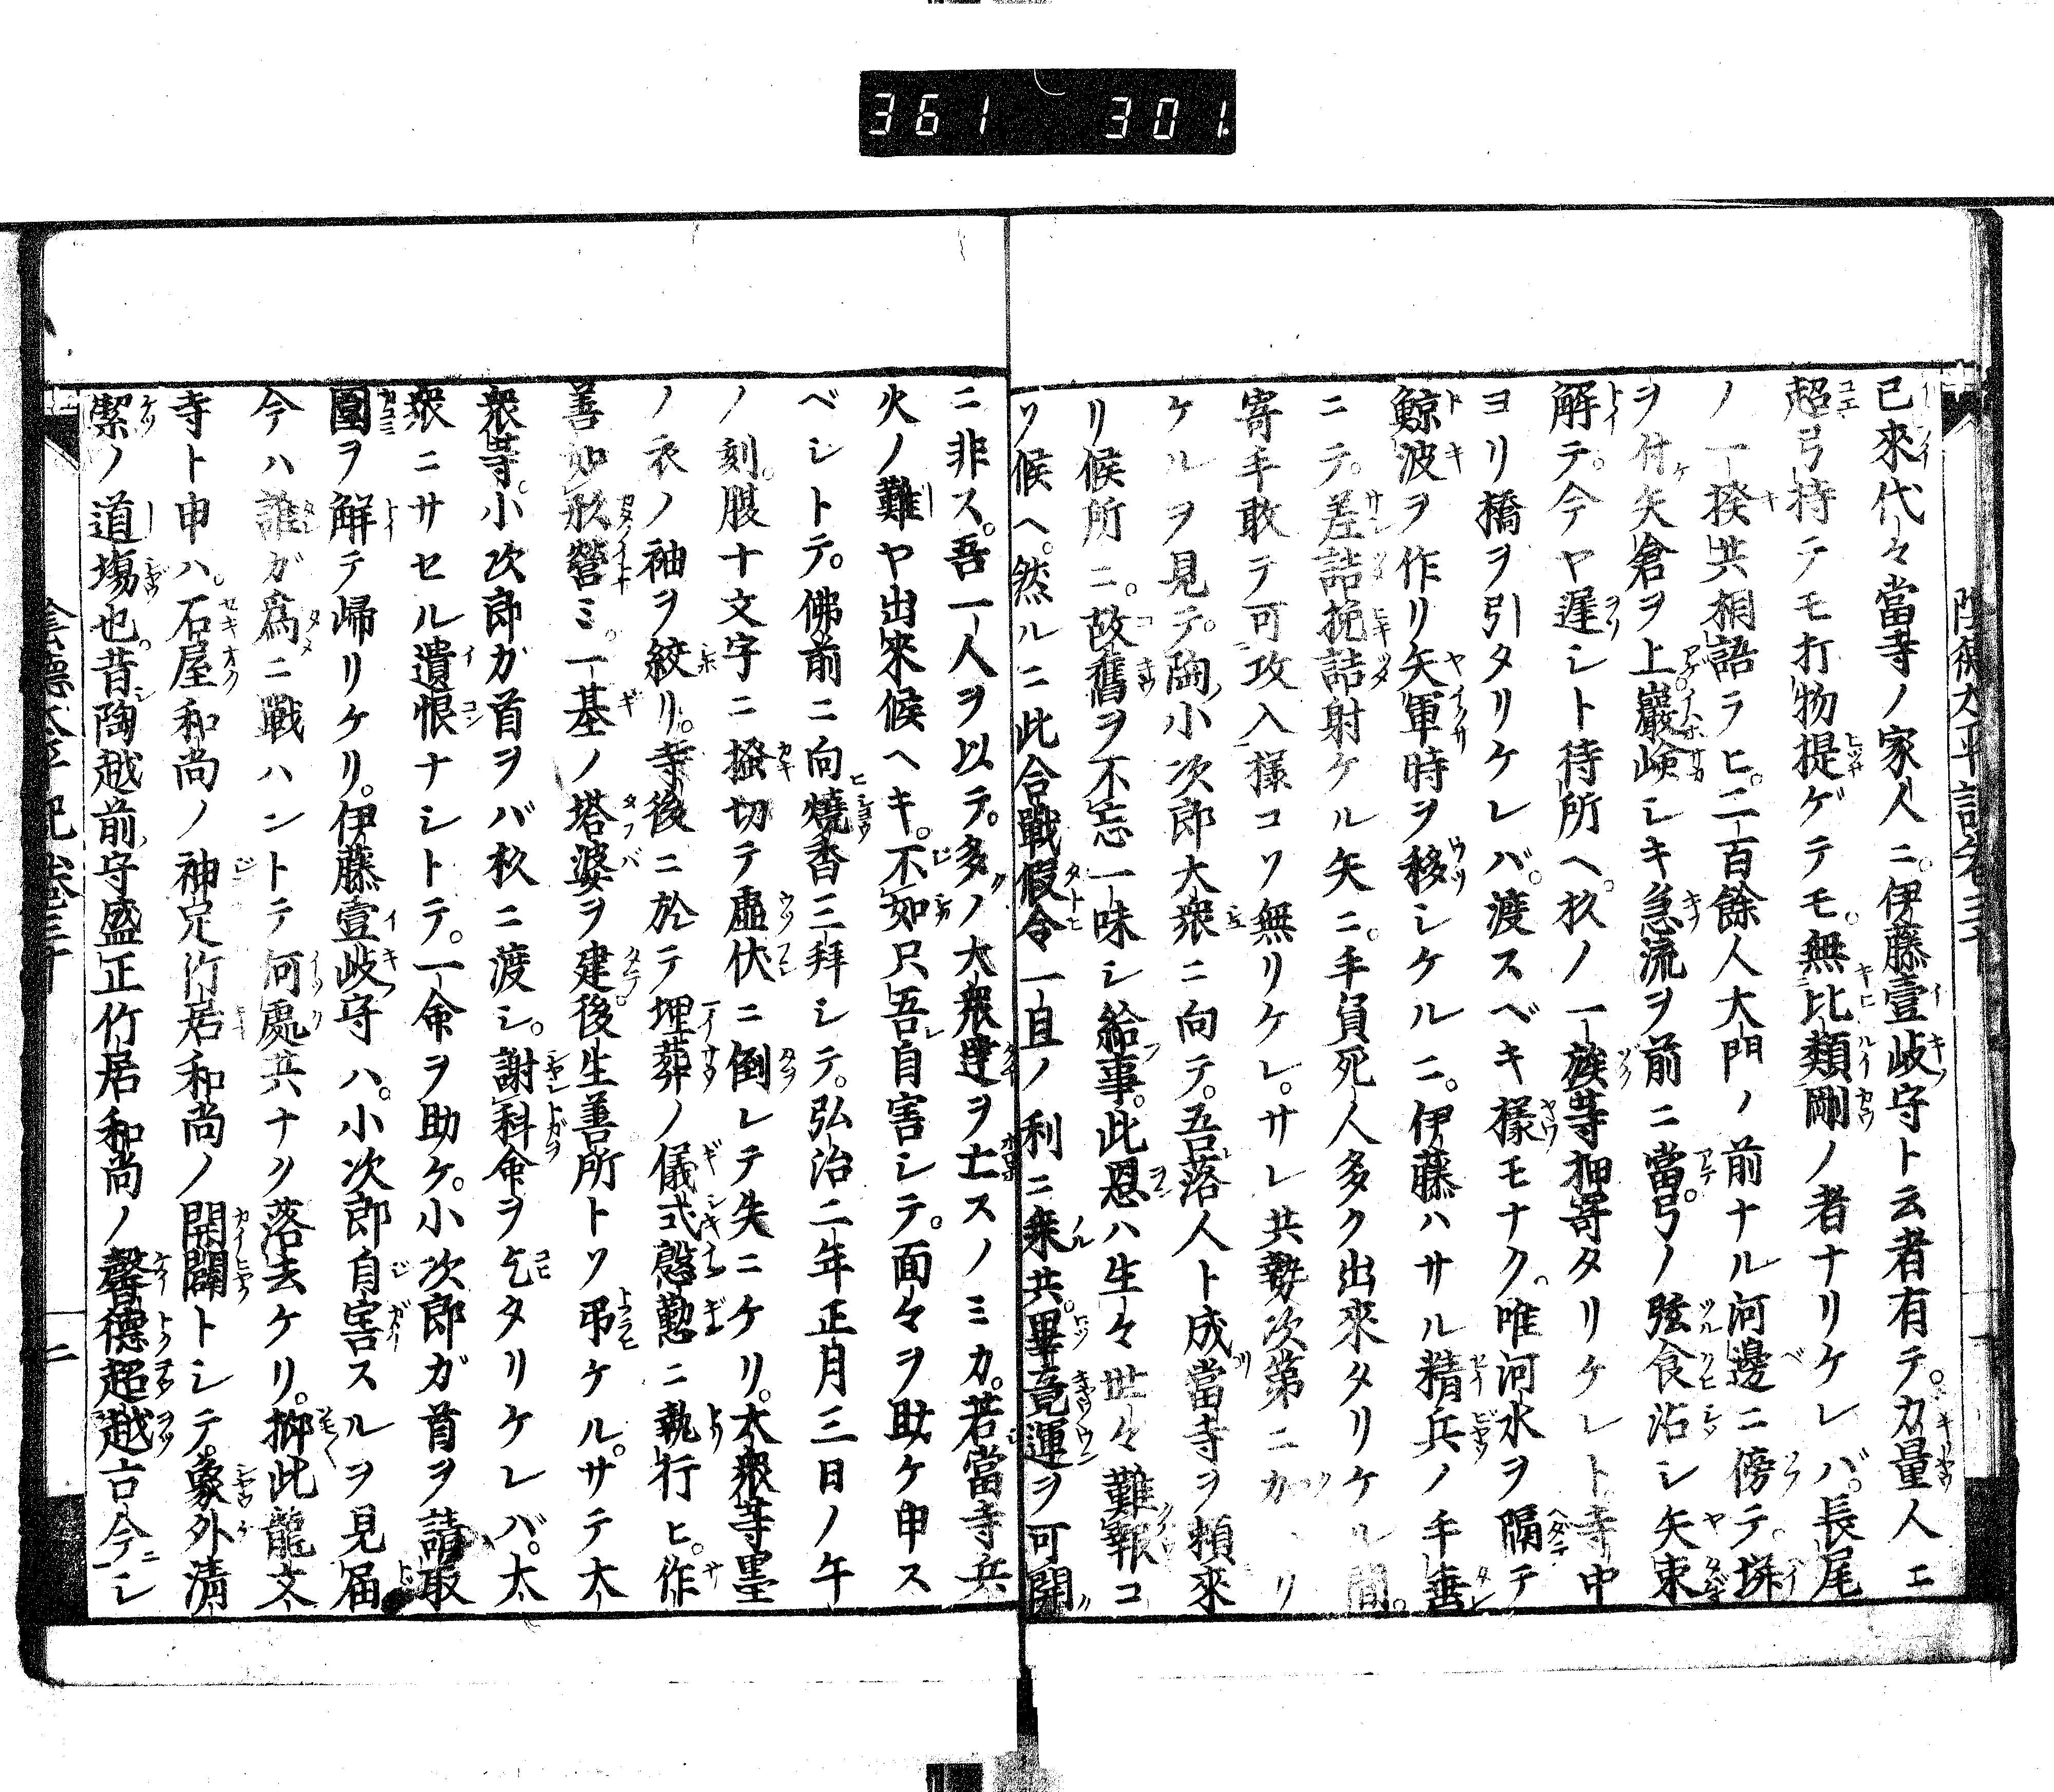 361 301
已來代々當寺ノ家人ニ。伊藤壹岐守ト云者有テ。力量人ニ
超弓持テモ打物提ゲテモ。無比類剛ノ者ナリケレバ。長尾
ノ一揆共相語ラヒ。二百餘人大門ノ前ナル河邊ニ傍テ。塀
ヲ付矢倉ヲ上巖嶮シキ急流ヲ前ニ當。弓ノ弦食沾シ矢束
解テ。今ヤ遲シト待所ヘ。杦ノ一族等押寄タリケレト寺中
ヨリ橋ヲ引タリケレバ。渡スベキ樣モナク。唯河水ヲ隔テ
鯨波ヲ作リ矢軍時ヲ移シケルニ。伊藤ハサル精兵ノ手垂
ニテ。差詰挽詰射ケル矢ニ。手負死人多ク出來タリケル間。
寄手敢テ可攻入樣コソ無リケレ。サレ共勢次第ニカ、リ
ケルヲ見テ。陶小次郎大衆ニ向テ。吾落人ト成當寺ヲ頼來
リ候所ニ。故舊ヲ不忘一味シ給事。此恩ハ生々世々難報コ
ソ候ヘ。然ルニ此合戰假令一旦ノ利ニ乘共。畢竟運ヲ可開
ニ非ス。吾一人ヲ以テ。多ノ大衆達ヲ亡スノミカ。若當寺兵
火ノ難ヤ出來候ヘキ。不如只吾自害シテ。面々ヲ助ケ申ス
ベシトテ。佛前ニ向燒香三拜シテ。弘治二年正月三日ノ午
ノ刻。腹十文字ニ掻切テ虛伏ニ倒レテ失ニケリ。大衆等墨
ノ衣ノ袖ヲ絞リ。寺後ニ於テ埋葬ノ儀式慇懃ニ執行ヒ。作
善如形營ミ。一基ノ塔婆ヲ建後生善所トソ弔ケル。サテ大
衆等。小次郎ガ首ヲバ杦ニ渡シ。謝科命ヲ乞タリケレバ。大
衆ニサセル遺恨ナシトテ。一命ヲ助ケ。小次郎ガ首ヲ請取
圍ヲ解テ歸リケリ。伊藤壹岐守ハ。小次郎自害スルヲ見屆
今ハ誰ガ爲ニ戰ハントテ何處共ナク落去ケリ。抑此龍文
寺ト申ハ。石屋和尚ノ神足竹居和尚ノ開闢トシテ。象外淸
潔ノ道塲也。昔陶越前守盛正竹居和尚ノ馨德超越古今ニシ